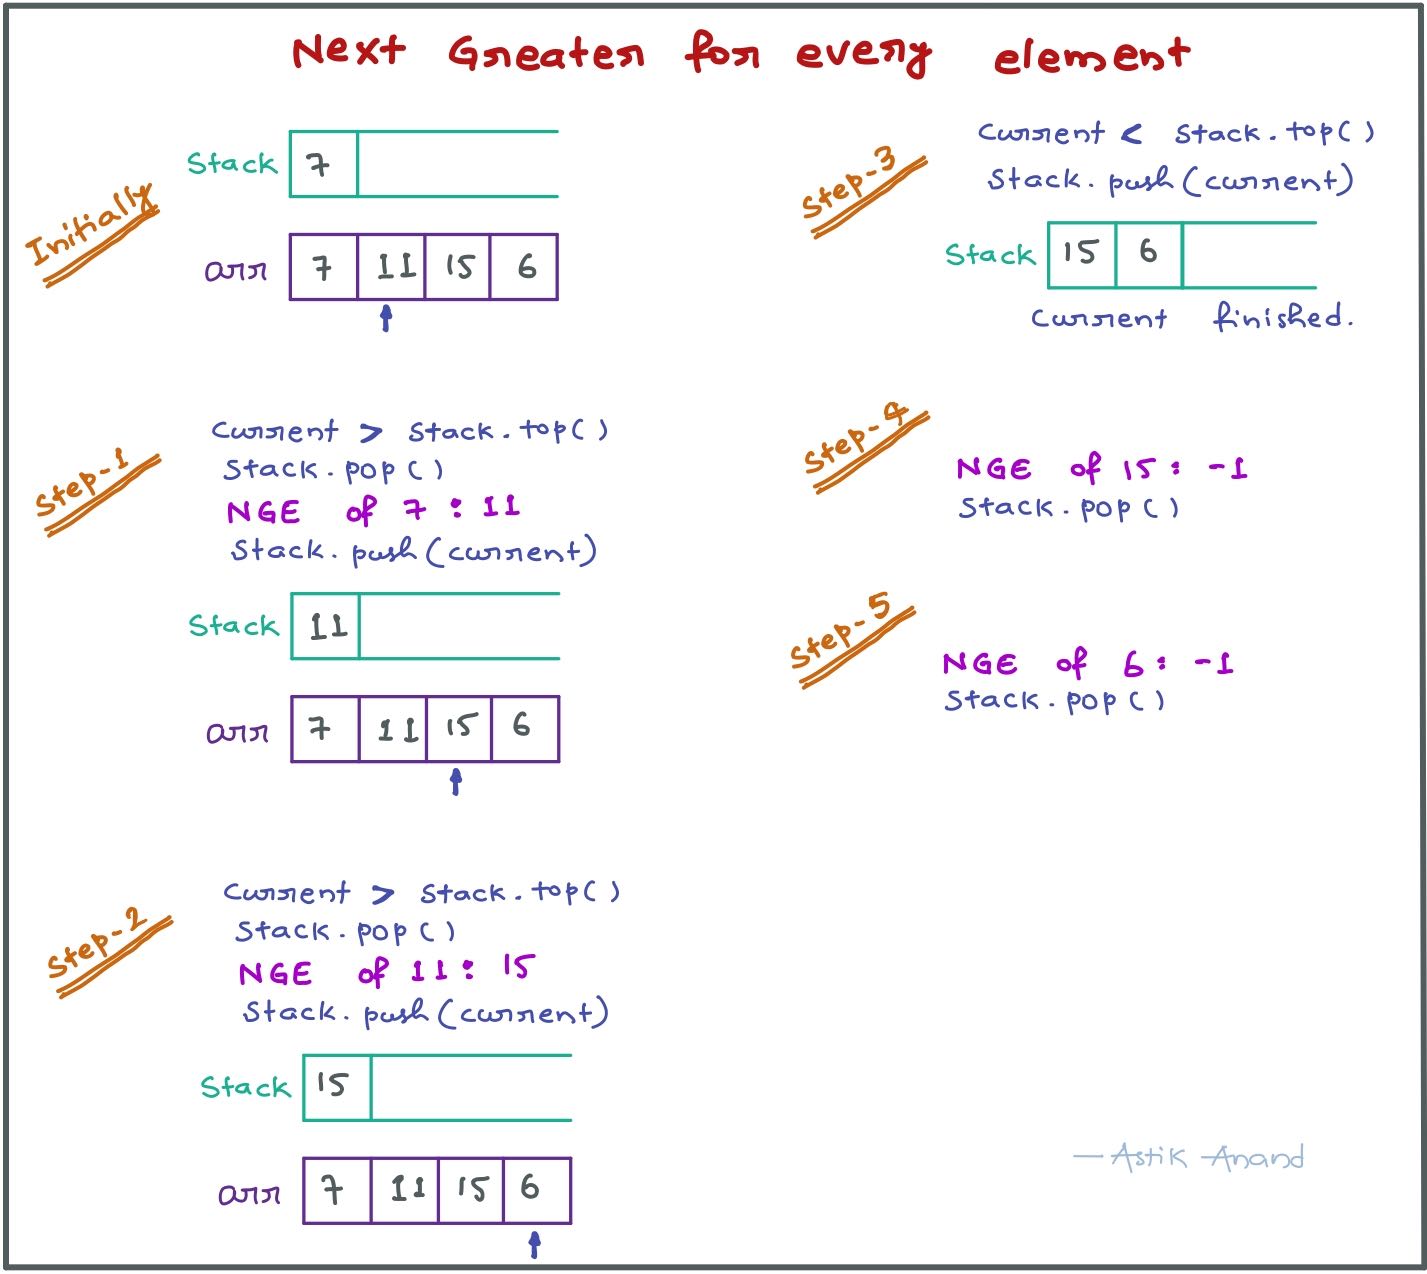 Next Greater for every element
Initially
Stack 7
arr 7 11 15 6
Step-1
Current > Stack.top()
Stack.pop()
NGE of 7 : 11
Stack.push(current)
Stack 11
arr 7 11 15 6
Step-2
Current > Stack.top()
Stack.pop()
NGE of 11 : 15
Stack.push(current)
Stack 15
arr 7 11 15 6
Step-3
Current < Stack.top()
Stack.push(current)
Stack 15 6
current finished.
Step-4
NGE of 15 : -1
Stack.pop()
Step-5
NGE of 6 : -1
Stack.pop()
— Astik Anand